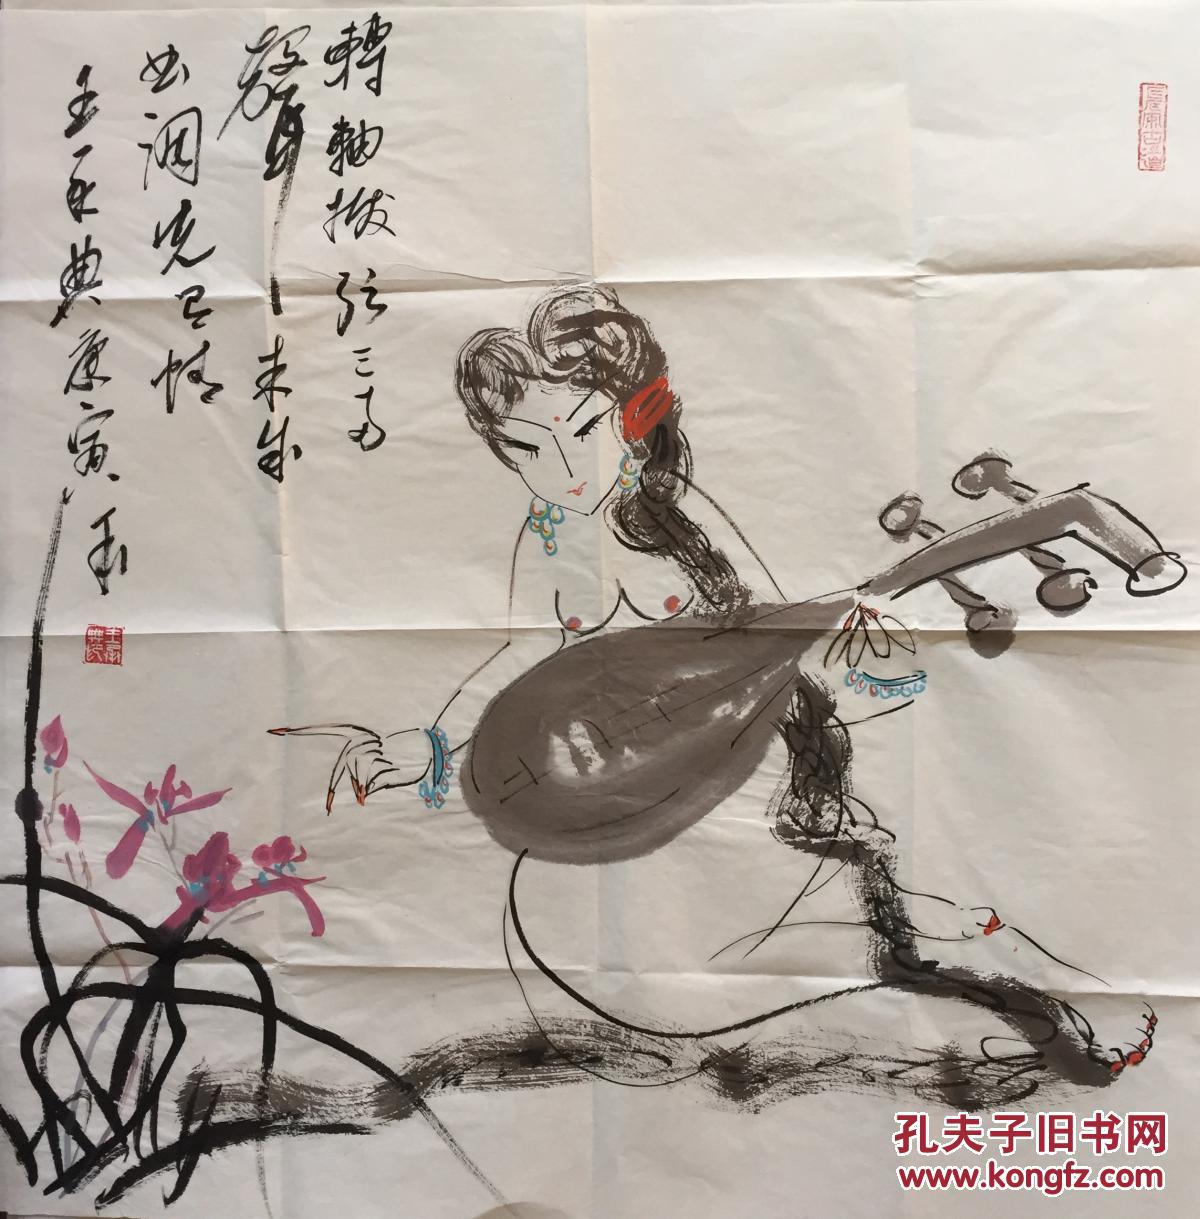 轉軸撥弦三兩
聲未成
曲調先有情
王承典庚寅年
王承典印
孔夫子旧书网
www.kongfz.com